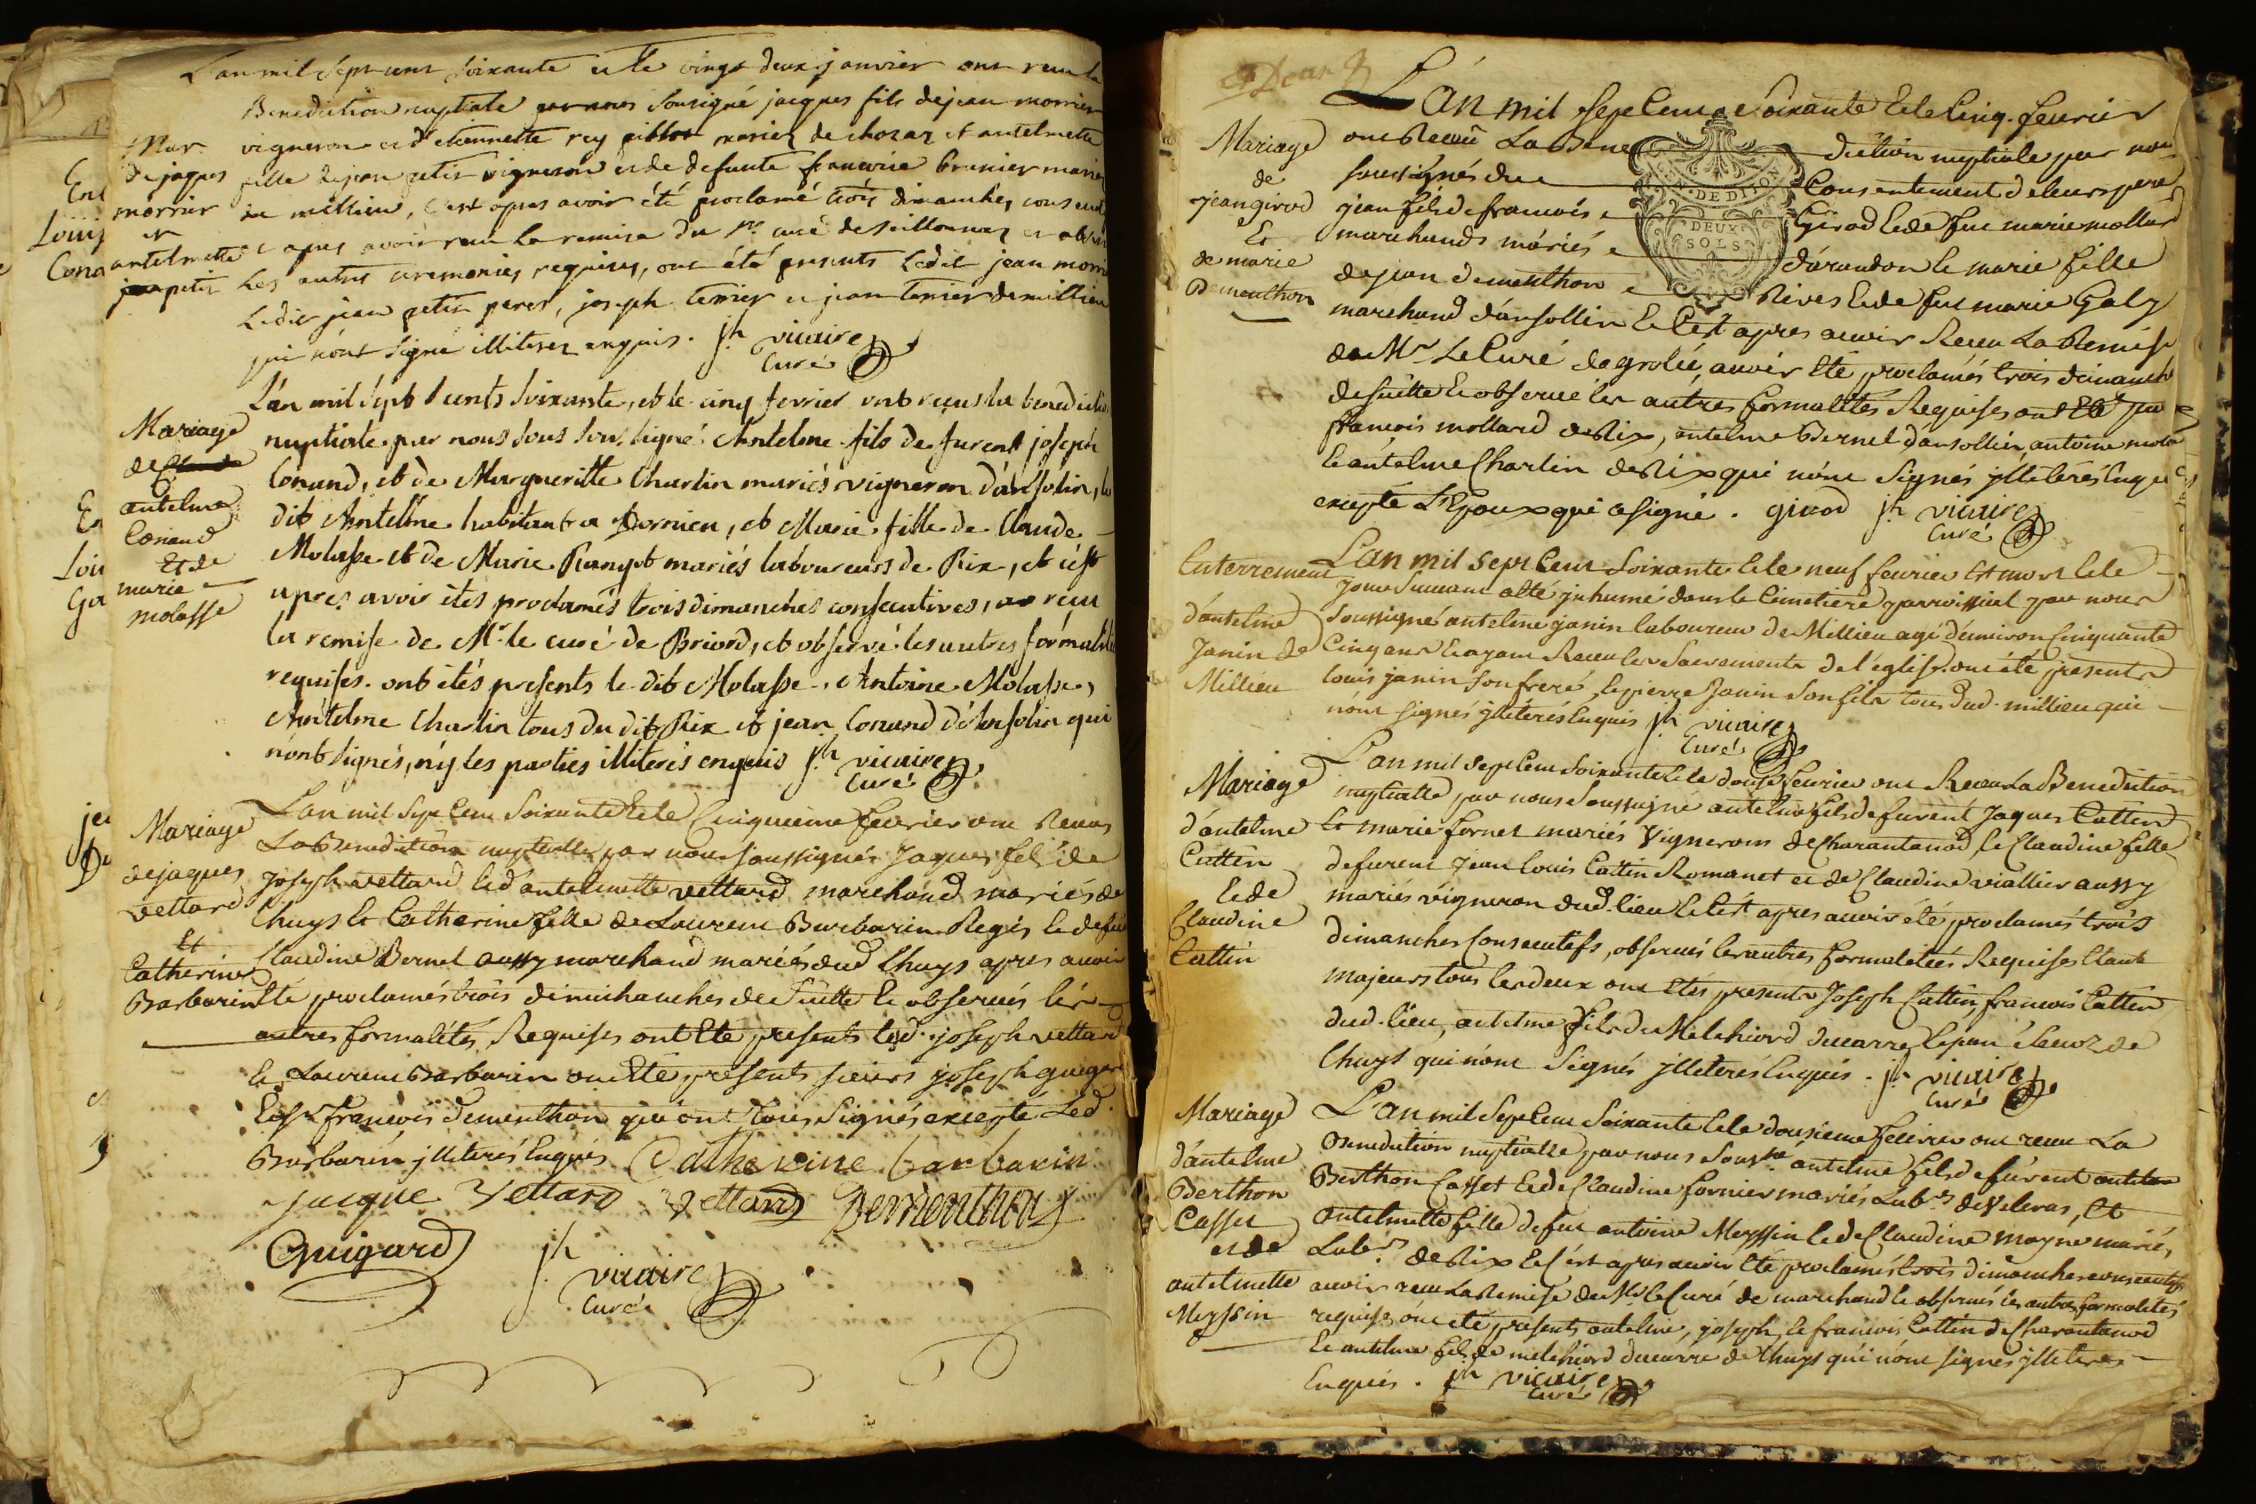 L'an mil sept cent soixante et le vingt deux janvier ont recu la
Benediction nuptiale par nous Soussigné jacques fils de jean morrier
vigneron et d'etiennette rey mariez de chozas et antelmette
fille de jean petit vigneron et de defunte francoise brunier mariez
de millieu, c'est apres avoir été proclamé trois dimanches
et apres avoir recu la remise du Sr curé de Seillonnaz et observé
les autres ceremonies requises, ont été presents Ledit jean morrier
Ledit jean petit peres, joseph terrier et jean terrier de millieu
qui n'ont signé illiterez enquis. jh vicaire
Curé
Mar.
de jaques
morrier
et
antelmette
petit
L'an mil sept cents soixante, et le cinq fevrier ont reçus la benediction
nuptiale par nous sous signé Antelme fils de furent joseph
Conand, et de Margueritte Charlin mariés vigneron d'ansolin, le
dit Antelme habitant a Dornieu, et Marie fille de Claude
Molasse et de Marie Rangot mariés laboureurs de Rix, et c'est
apres avoir étés proclamés trois dimanches consecutives, reçu
la remise de Mr le curé de Briord, et observé les autres formalités
requises. ont étés presents le dit Molasse, Antoine Molasse,
Antelme Charlin tous du dit Rix et jean Conand d'Ansolin qui
n'ont signés, n'y les parties illiterés enquis jh vicaire
Curé
Mariage
de
antelme
Conand
Et de
marie
molasse
L'an mil sept Cent Soixante Et le Cinquieme fevrier ont Recus
La Benediction nuptialle par nous soussignés Jaques fils de
Joseph vettard et d'antelmette vettard marchand mariés de
Chuys Et Catherine fille de Laurent Barbarin Regis Et de fut
Claudine Bernet aussy marchand mariés dud Chuys apres avoir
Eté proclamés trois dimanches de suitte Et observés les
autres formalités Requises ont Eté presents led. joseph vettard
Et Laurent Barbarin ont Eté presents sieurs joseph guigard
Et Sr francois dementhon qui ont tous Signés excepté Led.
Barbarin jlliterés Enquis Catherine barbarin
jacque vettard vettard Dementhon
Guigard jh vicaire
Curé
Mariage
de jaques
vettard
Et
Catherine
Barbarin
L'an mil sept Cent Soixante Et le Cinq fevrier
ont Recu La Bene diction nuptiale par nous
soussignés du Consentement de leurs peres
jean fils de francois Girod Et de fut marie mollard
marchands mariés d'arandon Et marie fille
de jean dementhon Rives Et de fut marie Galy
marchand d'ansollin Et C'est apres avoir Recu La Remise
de Mr Le Curé de grolée, avoir Eté proclamés trois dimanches
de suitte Et observé les autres formalités Requises ont Eté
francois mollard de Rix, antelme Bernet d'ansollin, antoine
Et antelme Charlin de Rix qui n'ont Signés jlliterés Enquis
excepté L'Epoux qui a signé. girod jh vicaire
Curé
Mariage
de
jean girod
Et
de marie
Dementhon
DEUX
SOLS
L'an mil sept Cent Soixante Et le neuf fevrier est mort Et le
jour suivant a Eté jnhumé dans le Cimetiere parroissial par nous
Soussigné antelme janin laboureur de Millieu agé d'environ Cinquante
Cinq ans Et ayant Recu les Sacrements de l'eglise, ont été presents
Louis janin son frere, Et pierre Janin son fils tous dud. millieu qui
n'ont signés jlliterés Enquis jh vicaire
Curé
Enterrement
d'antelme
Janin de
Millieu
L'an mil sept Cent Soixante Et le douze fevrier ont Recu La Benediction
nuptialle par nous Soussigné antelme fils de furent Jaques Cattin
Et marie fornet mariés Vignerons de Charantanod, Et Claudine fille
de furent Jean Louis Cattin Romanet et de Claudine viallier aussy
mariés vigneron dud. lieu Et C'est apres avoir été proclamés trois
dimanches Consecutifs, observés les autres formalités Requises Etant
majeurs tous les deux ont Etés presents Joseph Cattin, francois Cattin
dud. lieu, antelme fils de Melchiord ducarre
Chuys qui n'ont Signés jlliterés Enquis. jh vicaire
Curé
Mariage
d'antelme
Cattin
Et de
Claudine
Cattin
L'an mil Sept Cent Soixante Et le dousieme fevrier ont recu La
Benediction nuptialle par nous Soussé antelme fils de furent
Berthon Casset Et de Claudine fornier mariés Labrs de Veleras, Et
antelmette fille de fut antoine Meyssin Et de Claudine moyne mariés,
Labrs de Rix Et C'est apres avoir Eté proclamés trois dimanches consecutifs
avoir recu La Remise de Mr Le Curé de marchand Et observés les autres formalités
requises ont été presents antelme, joseph, Et francois Cattin de Charantanod
Et antelme fils de melchiord ducarre de Chuys qui n'ont signés jlliterés
Enquis. jh vicaire
Curé
Mariage
d'antelme
Berthon
Casset
et de
antelmette
Meyssin